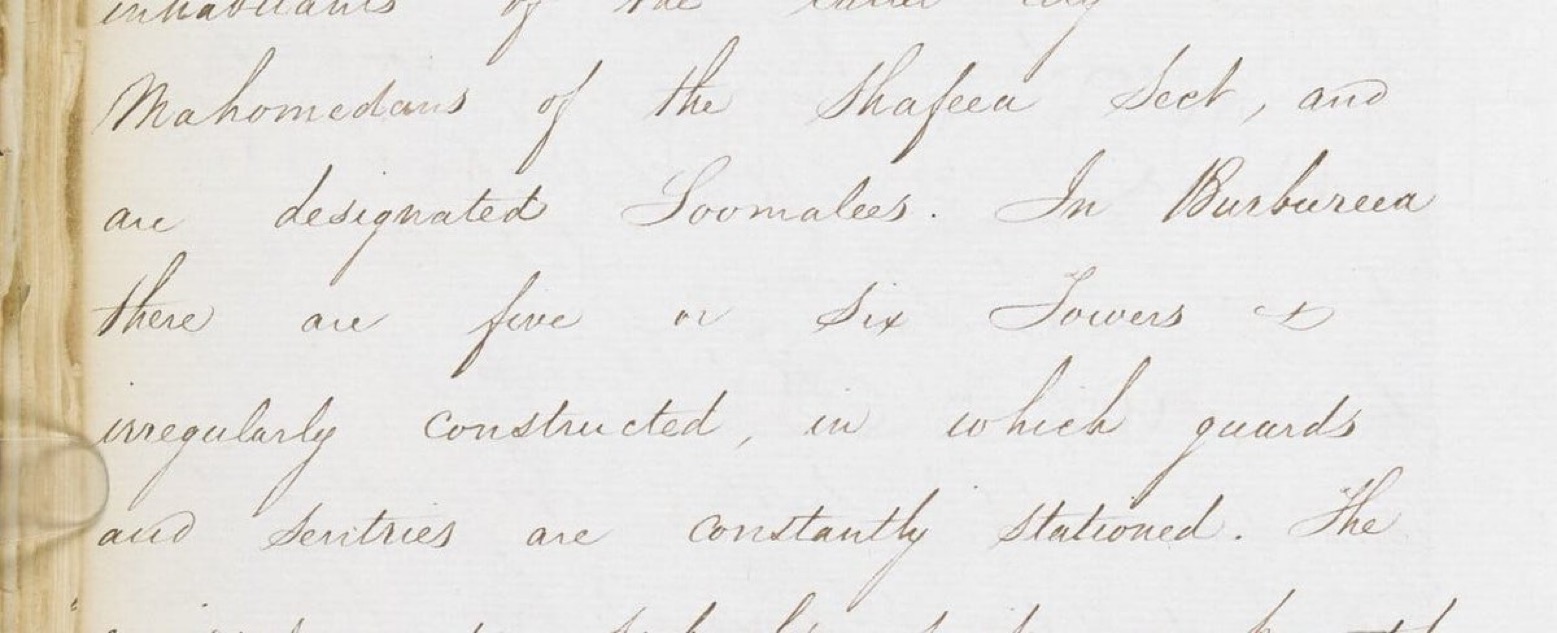 inhabitants of the latter city
Mahomedans of the Shafeea Sect, and
are designated Soomalees. In Burbureea
there are five or six Towers &
irregularly constructed, in which guards
and sentries are constantly stationed. The